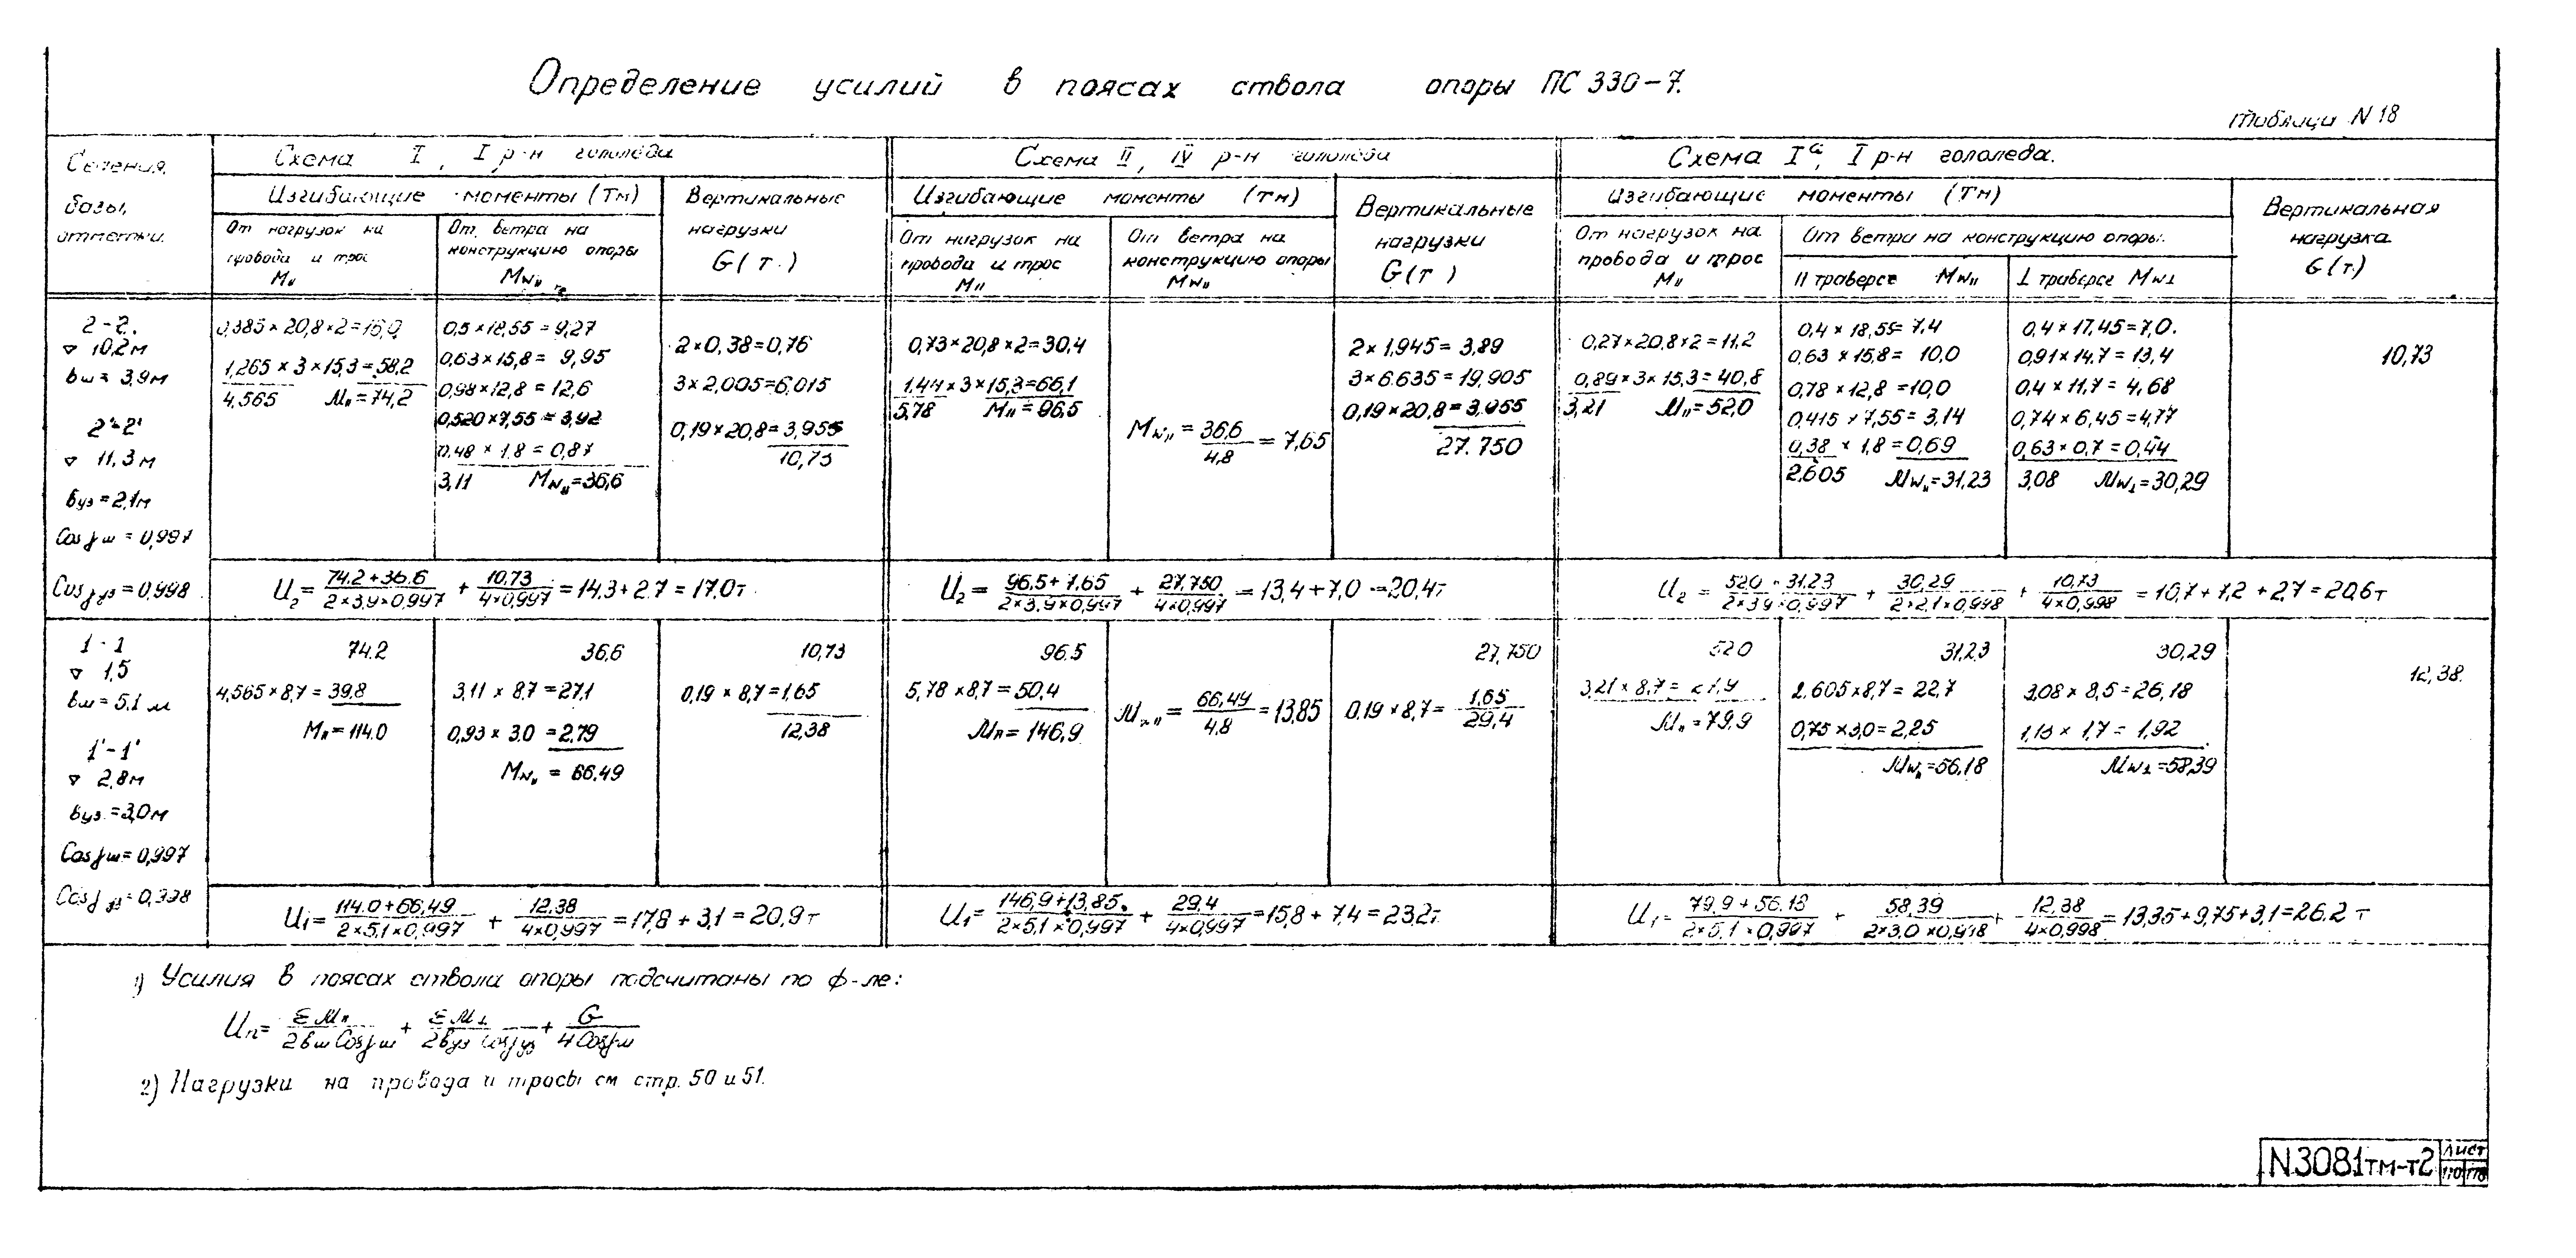 Определение усилий в поясах ствола опоры ПС 330-7.
Таблица N 18
Сечения, базы, отметки.
Схема I, I р-н гололеда
Изгибающие моменты (Тм)
От нагрузок на провода и трос M॥
От ветра на конструкцию опоры Mw॥
Вертикальные нагрузки G(т.)
Схема II, IV р-н гололеда
Изгибающие моменты (тм)
От нагрузок на провода и трос M॥
От ветра на конструкцию опоры Mw॥
Вертикальные нагрузки G(т)
Схема Iа, I р-н гололеда.
Изгибающие моменты (Тм)
От нагрузок на провода и трос M॥
От ветра на конструкцию опоры.
॥ траверсе Mw॥
⊥ траверсе Mw⊥
Вертикальная нагрузка G(т.)
2-2.
▽ 10,2м
bш = 3,9м
2'-2'
▽ 11,3м
bуз = 2,1м
Cosγш = 0,997
Cosγуз = 0,998
0,385×20,8×2=16,0
1,265×3×15,3=58,2
4,565 M॥=74,2
0,5×18,55=9,27
0,63×15,8= 9,95
0,98×12,8=12,6
0,520×7,55=3,92
0,48×1,8=0,87
3,11 Mw॥=36,6
2×0,38=0,76
3×2,005=6,015
0,19×20,8=3,955
10,73
0,73×20,8×2=30,4
1,44×3×15,3=66,1
5,78 M॥=96,5
Mw॥=36,6/4,8=7,65
2×1,945=3,89
3×6,635=19,905
0,19×20,8=3,955
27.750
0,27×20,8×2=11,2
0,89×3×15,3=40,8
3,21 M॥=52,0
0,4×18,55=7,4
0,63×15,8= 10,0
0,78×12,8=10,0
0,415×7,55=3,14
0,38×1,8=0,69
2,605 Mw॥=31,23
0,4×17,45=7,0.
0,91×14,7=13,4
0,4×11,7=4,68
0,74×6,45=4,77
0,63×0,7=0,44
3,08 Mw⊥=30,29
10,73
U2=(74.2+36.6)/(2×3,9×0,997)+10,73/(4×0,997)=14,3+2.7=17.0т
U2=(96.5+7.65)/(2×3,9×0,997)+27,750/(4×0,997)=13,4+7,0=20,4т
U2=(52.0+31.23)/(2×3.9×0,997)+30,29/(2×2,1×0,998)+10,73/(4×0,998)=10,7+7,2+2,7=20,6т
1-1
▽ 1,5
bш = 5,1 м
1'-1'
▽ 2,8м
bуз. = 3,0м
Cosγш = 0,997
74.2
4,565×8,7=39,8
M॥=114.0
36,6
3,11×8,7=27,1
0,93×3.0=2.79
Mw॥ = 66.49
10,73
0,19×8,7=1,65
12,38
96.5
5,78×8,7=50,4
M॥=146,9
Mw॥=66,49/4,8=13,85
27,750
0,19×8,7=1,65
29,4
52.0
3,21×8,7=27,9
M॥=79.9
31,23
2.605×8,7=22,7
0,75×3,0=2,25
Mw॥=56,18
30,29
3,08×8,5=26,18
1,13×1,7=1,92
Mw⊥=58,39
12,38.
U1=(114.0+66,49)/(2×5,1×0,997)+12,38/(4×0,997)=17,8+3,1=20,9т
U1=(146,9+13,85)/(2×5,1×0,997)+29.4/(4×0,997)=15,8+7,4=23,2т
U1=(79.9+56.18)/(2×5,1×0,997)+58,39/(2×3.0×0,998)+12,38/(4×0,998)=13,35+9,75+3,1=26.2 т
1) Усилия в поясах ствола опоры подсчитаны по ф-ле:
Un=ΣM॥/(2bш Cosγш)+ΣM⊥/(2bуз Cosγуз)+G/(4Cosγш)
2) Нагрузки на провода и тросы см стр. 50 и 51.
N3081тм-т2
Лист